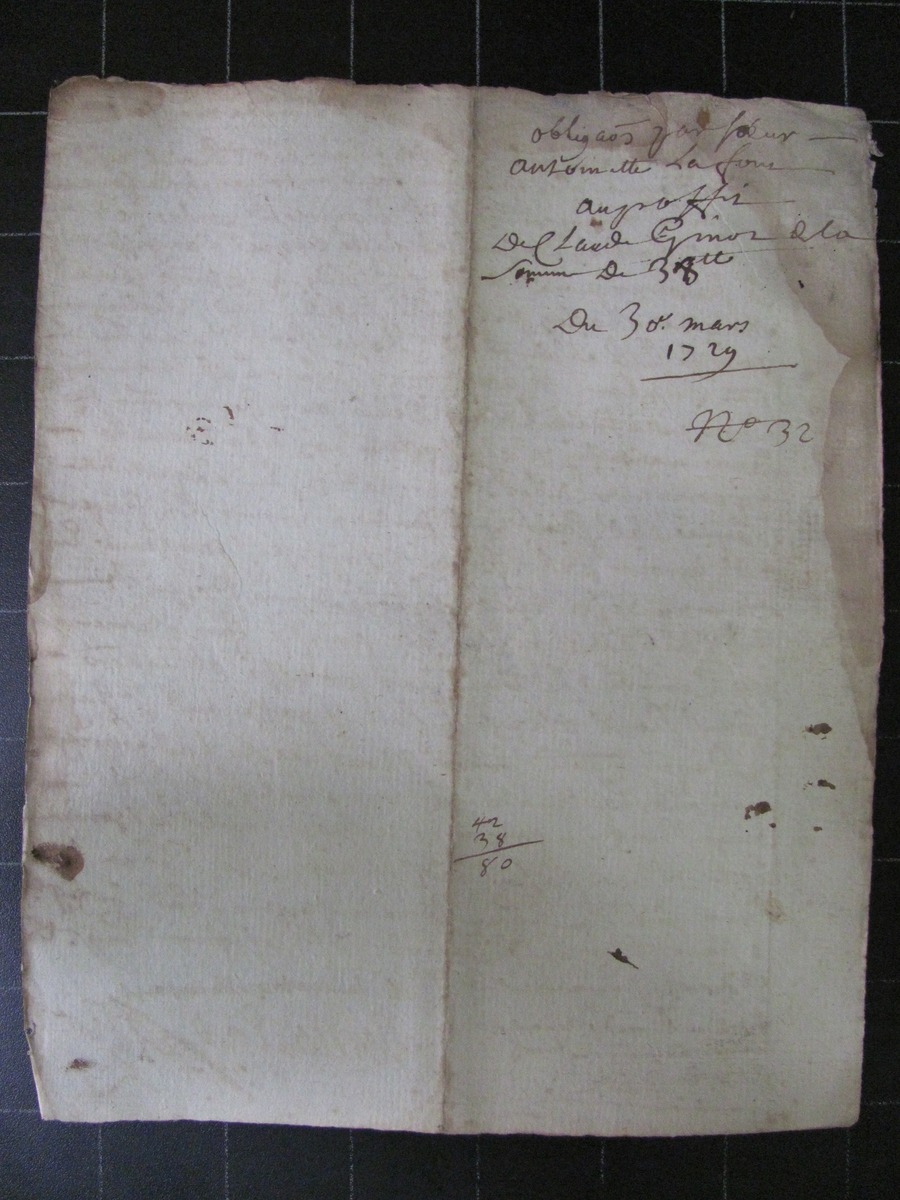 obligaõn par sœur
antoinette Lafont
auproffit
De Claude Ginot de la
somme De 38ᵗᵗ
Du 30ᵉ. mars
1729
Nº 32
42
38
80